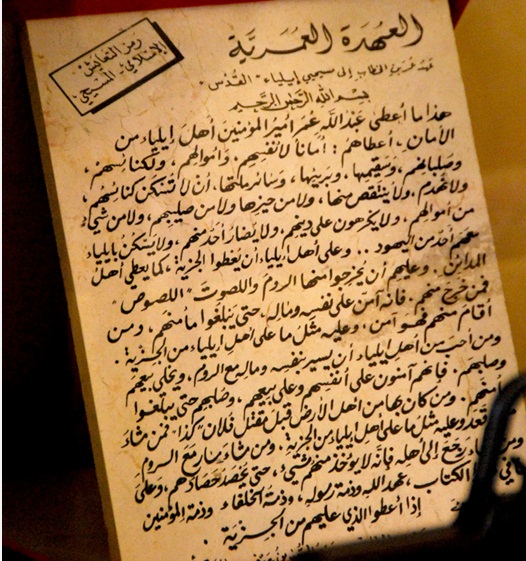 العهدة العمرية
رمز التعايش
الإسلامي - المسيحي
عهد عمر بن الخطاب إلى مسيحيي إيلياء "القدس"
بسم الله الرحمن الرحيم
هذا ما أعطى عبد الله عمر أمير المؤمنين أهل إيلياء من
الأمان، أعطاهم: أماناً لأنفسهم، وأموالهم، ولكنائسهم،
وصلبانهم، وسقيمها، وبريئها، وسائر ملتها، أن لا تسكن كنائسهم،
ولا تهدم، ولا ينتقص منها، ولا من حيزها ولا من صليبهم، ولا من شيء
من أموالهم، ولا يكرهون على دينهم، ولا يضار أحد منهم، ولا يسكن بإيلياء
معهم أحد من اليهود.. وعلى أهل إيلياء أن يعطوا الجزية، كما يعطي أهل
المدائن. وعليهم أن يخرجوا منها الروم واللصوت "اللصوص"
فمن خرج منهم. فإنه آمن على نفسه وماله، حتى يبلغوا مأمنهم، ومن
أقام منهم فهو آمن، وعليه مثل ما على أهل إيلياء من الجزية.
ومن أحب من أهل إيلياء أن يسير بنفسه وماله مع الروم، ويخلي بيعهم
وصلبهم. فإنهم آمنون على أنفسهم وعلى بيعهم، وصلبهم حتى يبلغوا
مأمنهم. ومن كان بها من أهل الأرض قبل مقتل فلان "كذا" فمن شاء
قعد وعليه مثل ما على أهل إيلياء من الجزية. ومن شاء سار مع الروم
ومن شاء رجع إلى أهله فإنه لا يؤخذ منهم شيء، حتى يحصد حصادهم. وعلى
ما في هذا الكتاب، عهد الله وذمة رسوله، وذمة الخلفاء وذمة المؤمنين
إذا أعطوا الذي عليهم من الجزية.